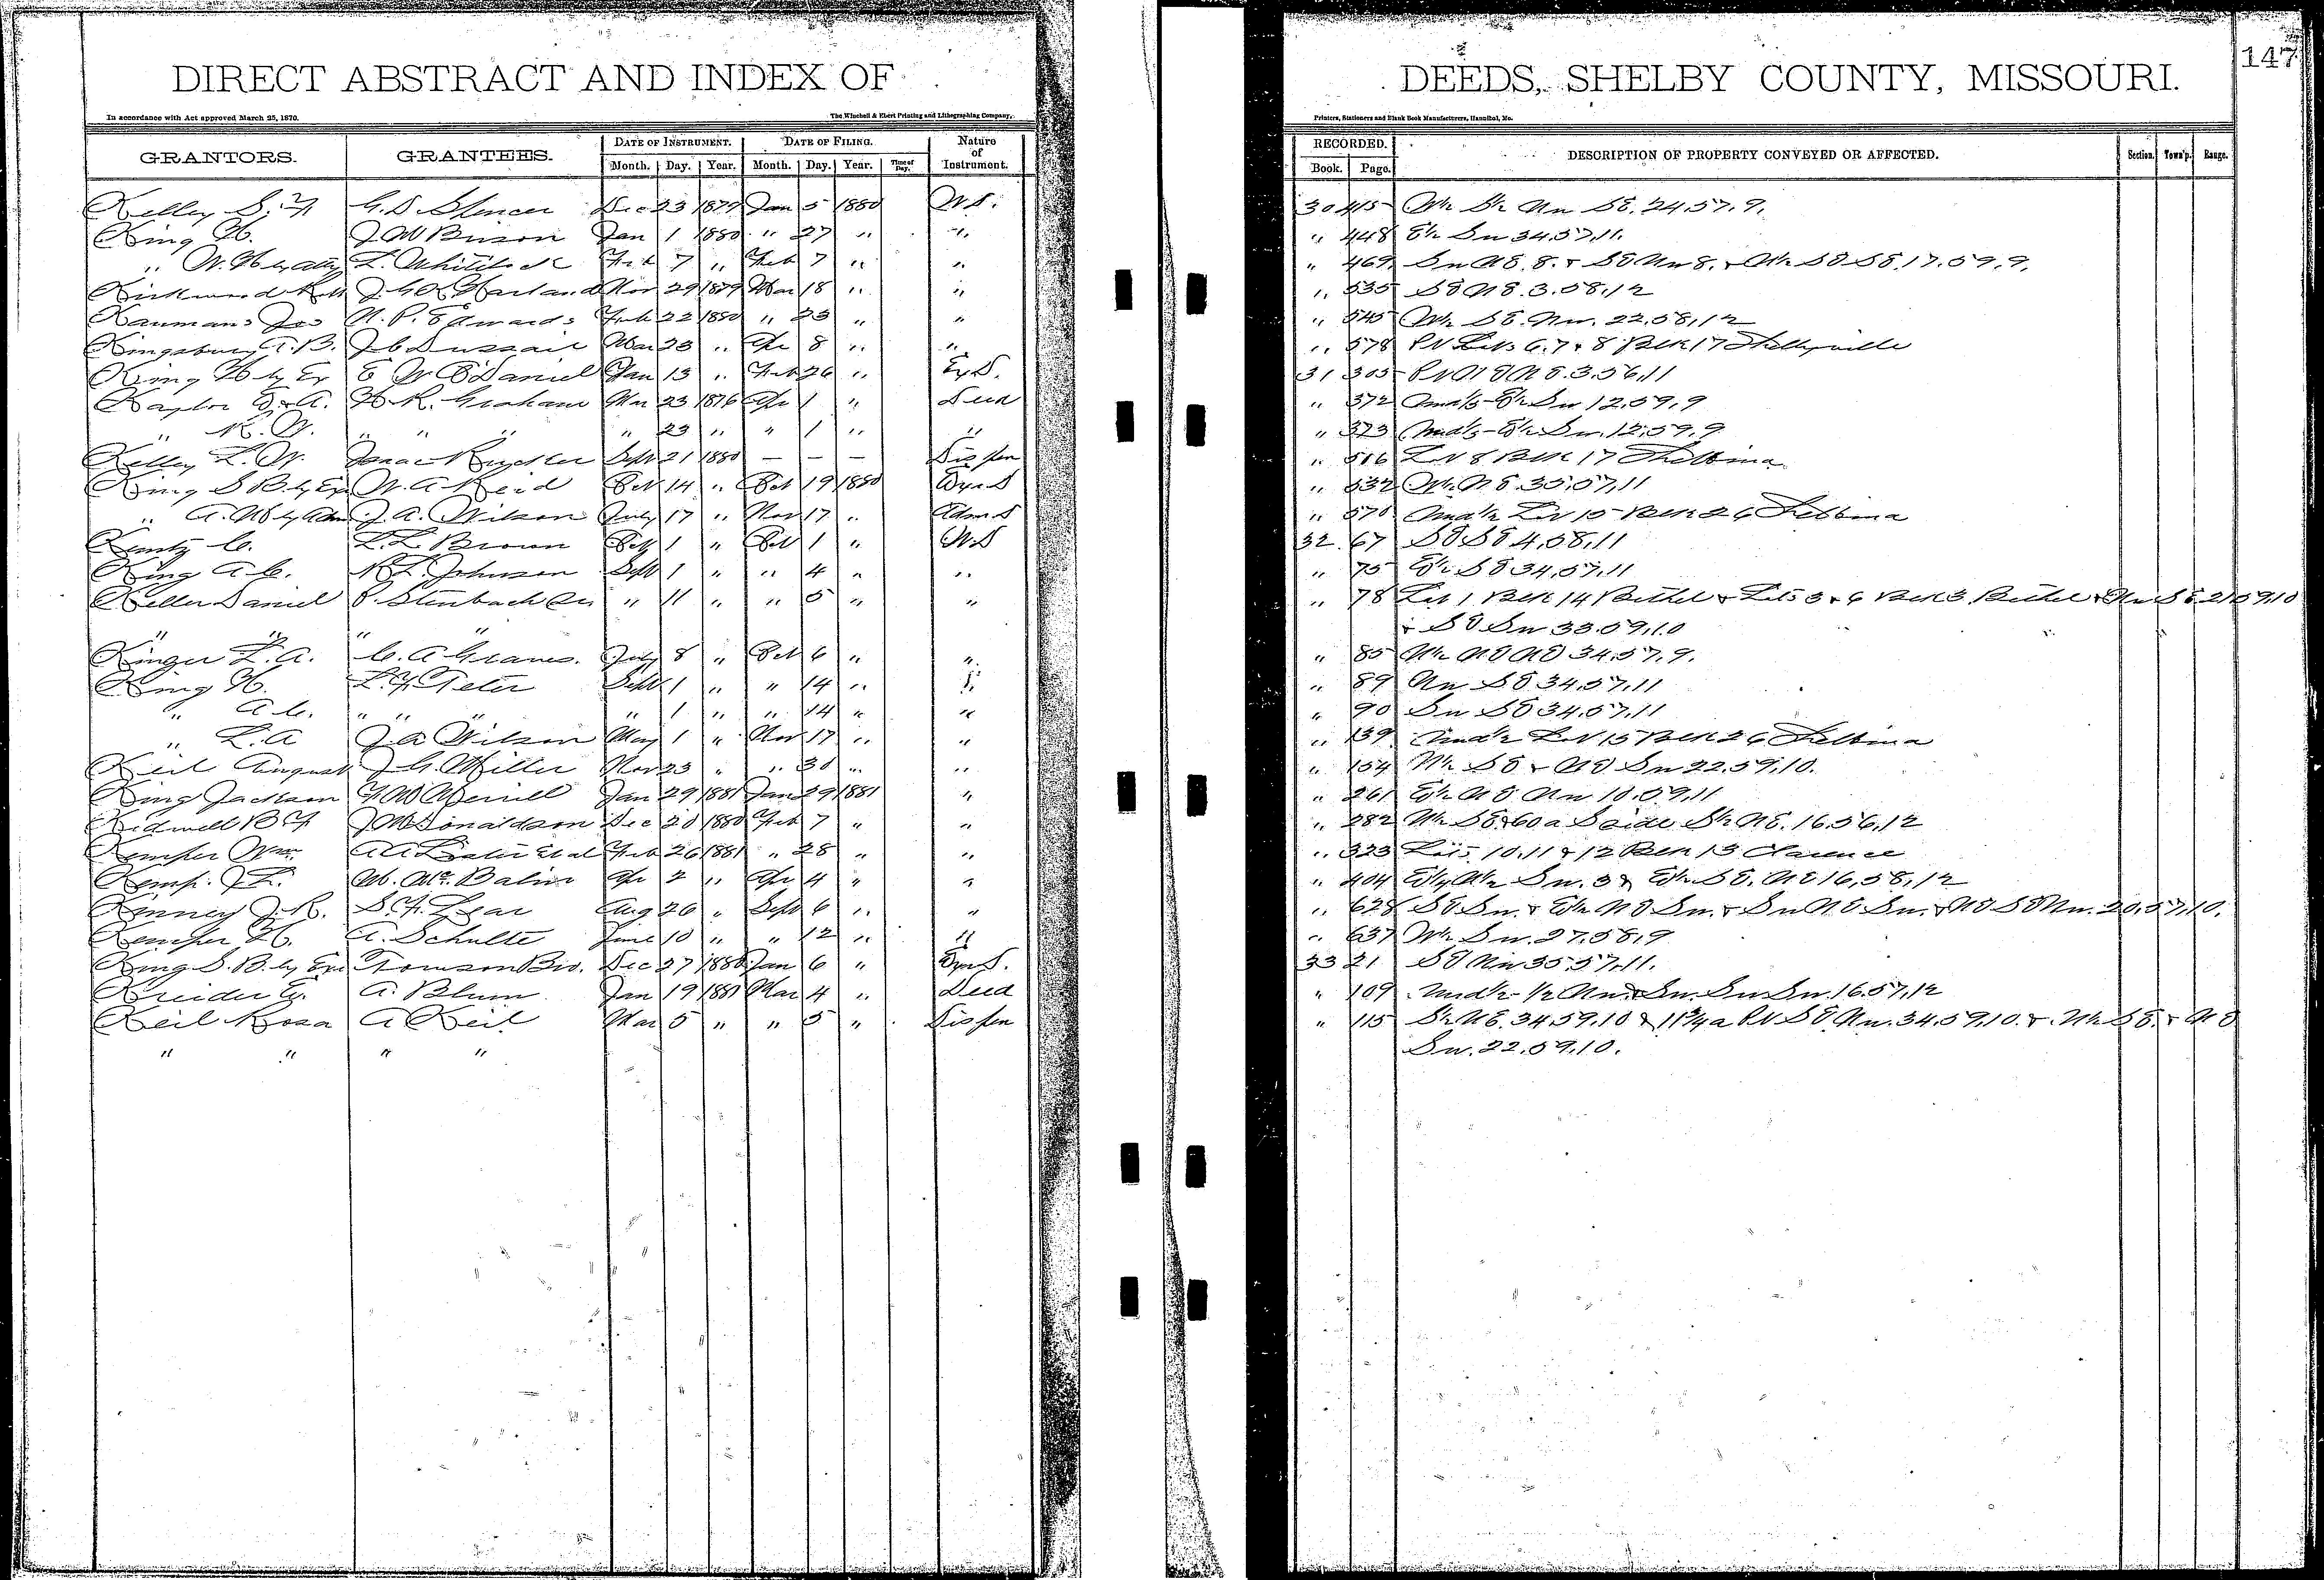 147
DIRECT ABSTRACT AND INDEX OF DEEDS, SHELBY COUNTY, MISSOURI.
In accordance with Act approved March 25, 1870. The Winchell & Ebert Printing and Lithographing Company, Printers, Stationers and Blank Book Manufacturers, Hannibal, Mo.
GRANTORS. GRANTEES. DATE OF INSTRUMENT. DATE OF FILING. Nature of Instrument. RECORDED. DESCRIPTION OF PROPERTY CONVEYED OR AFFECTED. Section. Town'p. Range.
Month. Day. Year. Month. Day. Year. Time of Day. Book. Page.
Kelley S. G. D. Spencer Dec 23 1879 Jan 5 1880 W.D. 30 415 Nw SE. 24.57.9.
King H. J M Bu Jan 1 1880 " 27 " " " 448 Sw 34.57.11.
" W. H by atty L. Whitelock Feb 7 " Feb 7 " " " 469 Sw NE. 8. & SE Nw 8. & SE SE. 17.59.9.
Kirkwood Harland Nov 29 1879 Mar 18 " " " 535 SE NE. 3.58.12
Kauman Jos N. P. Edwards Feb 22 1880 " 23 " " " 545 SE. Nw. 22.58.12
Kingsbury A.B. Mar 23 " Apr 8 " " " 578 Pt Lots 6.7 & 8 Blk 17 Shelbyville
King H by Ex E W O'Daniel Jan 13 " Feb 26 " Ex D. 31 305 Pt NE. 3.56.11
Kaylor A. H. R. Graham Mar 23 1876 Apr 1 " Deed " 372 Sw 12.59.9
" N. W. " " " " 23 " " 1 " " " 373 Sw. 12.59.9
Kelley L. W. Isaac Sept 21 1880 — — — Dis pen " 516 Lot 8 Blk 17 Shelbina
King S B by Ex W. A Reid Oct 14 " Oct 19 1880 Exr D " 532 NE. 35.57.11
" A. W by Adm J. A. Wilson July 17 " Nov 17 " Adm D " 570 Und ½ Lot 15 Blk 26 Shelbina
Kentz C. L. L. Brown Oct 1 " Oct 1 " W D 32 67 SE SE 4.58.11
King A. C. N L. Johnson Sept 1 " " 4 " " " 75 SE 34.57.11
Keller Daniel P. Steinbach " 11 " " 5 " " " 78 Lot 1 Blk 14 Bethel & Lots 3 & 6 Blk 3 Bethel & 21.59.10
" " " " & SE Sw 33.59.10
L. A. C. A Graves. July 8 " Oct 6 " " " 85 NE NE 34.57.9.
King H. L. Y. Peter Sept 1 " " 14 " " " 89 Nw SE 34.57.11
" A. C. " " " " 1 " " 14 " " " 90 Sw SE 34.57.11
" L. A J. A Wilson May 1 " Nov 17 " " " 139 Und ½ Lot 15 Blk 26 Shelbina
Keil August J G. Miller Nov 23 " " 30 " " " 154 SE & NE Sw 22.59.10.
King Jackson Merrill Jan 29 1881 Jan 29 1881 " " 261 NE Nw 10.59.11
Kidwell B J M Donaldson Dec 20 1880 Feb 7 " " " 282 SE & 60 a S side NE. 16.56.12
Kemper Wm. et al Feb 26 1881 " 28 " " " 323 Lots 10.11 & 12 Blk 13 Clarence
Kemp. J L. Balin Apr 2 " Apr 4 " " " 404 NE 16.58.12
Kenney J. R. Aug 26 " Sept 6 " " " 628 SE Sw. & NE Sw. & Sw NE Sw. & NE SE Nw. 20.57.10.
Kemper H. A. Schulte June 10 " " 12 " " " 637 Sw. 27.58.9
King S. B. by Exr Towson Bro. Dec 27 1880 Jan 6 " Exr D. 33 21 SE Nw 35.57.11.
Kreider A. Blum Jan 19 1881 Mar 4 " Deed " 109 Und ½ Nw & Sw. Sw Sw. 16.57.12
Keil Rosa A Keil Mar 5 " " 5 " Dis pen " 115 NE. 34.59.10 & 11¾ a Pt SE. Nw. 34.59.10. & SE. & NE
" " " " Sw. 22.59.10.